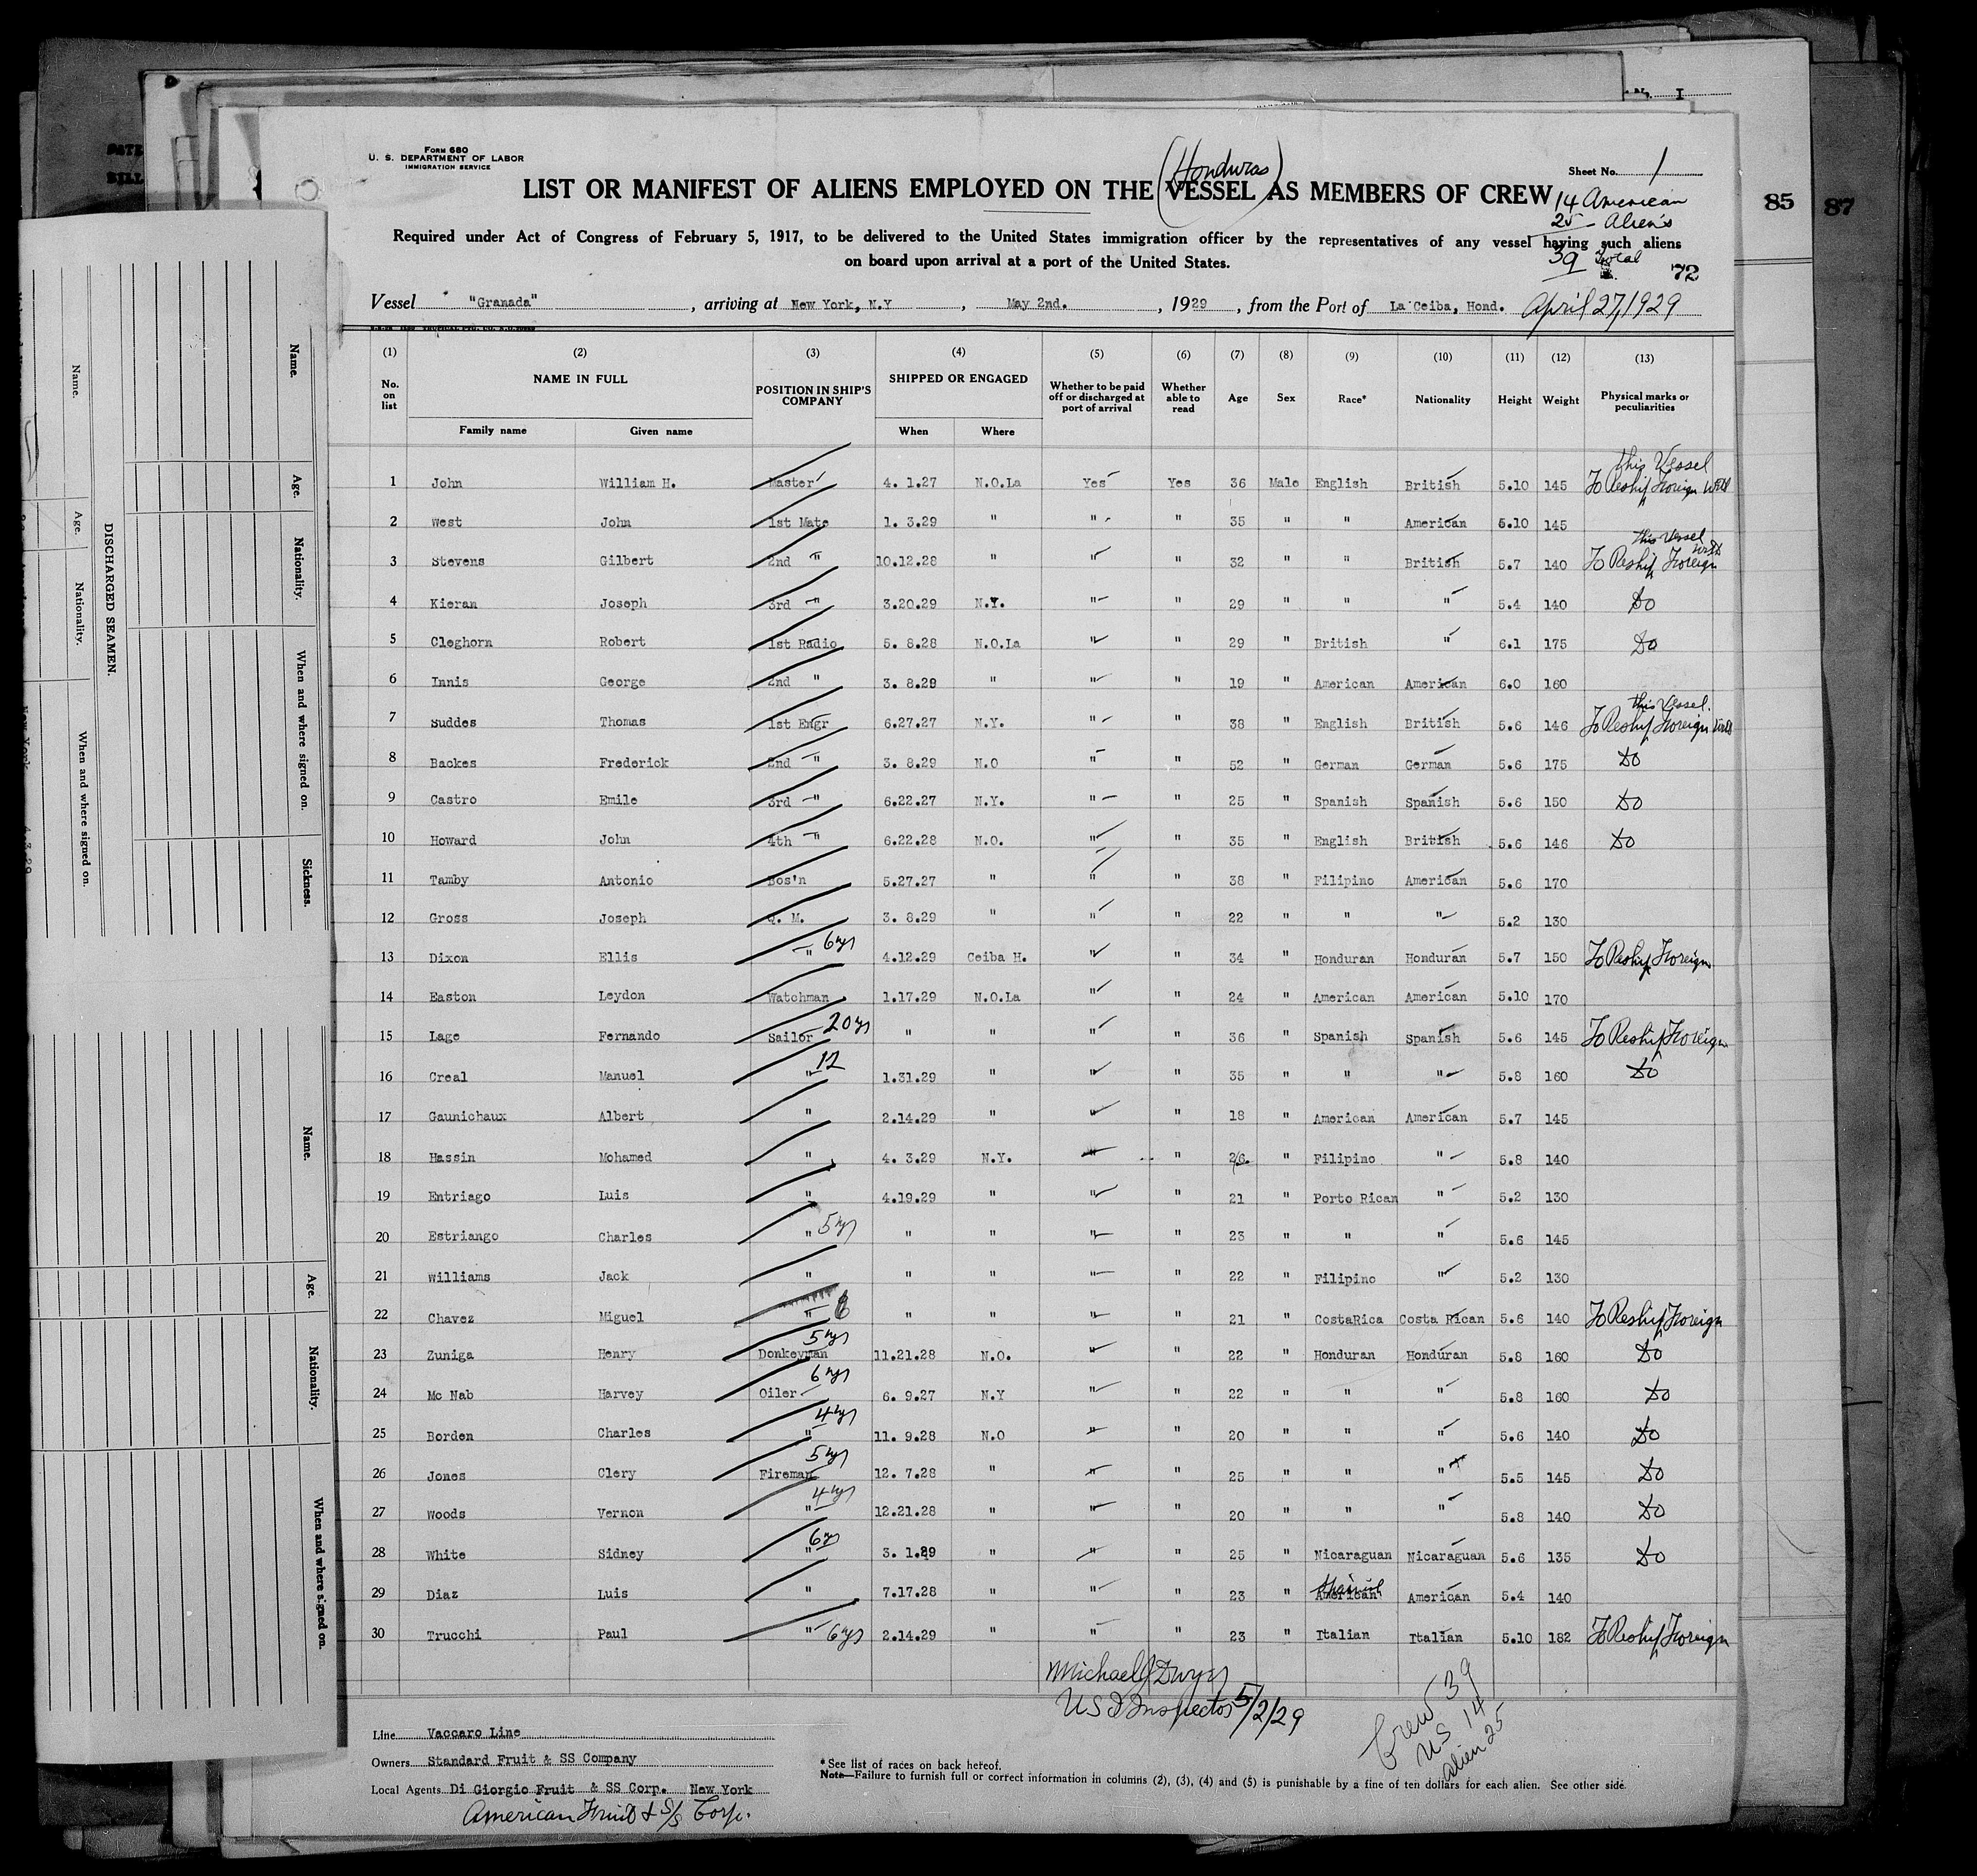 FORM 680
U. S. DEPARTMENT OF LABOR
IMMIGRATION SERVICE
Sheet No. 1
(Honduras)
LIST OR MANIFEST OF ALIENS EMPLOYED ON THE VESSEL AS MEMBERS OF CREW
14 American
25 - Alien's
39 Total
Required under Act of Congress of February 5, 1917, to be delivered to the United States immigration officer by the representatives of any vessel having such aliens
on board upon arrival at a port of the United States.
72
85
87
Vessel "Granada", arriving at New York, N.Y, May 2nd., 1929, from the Port of La Ceiba, Hond. April 27, 1929
(1) (2) (3) (4) (5) (6) (7) (8) (9) (10) (11) (12) (13)
No. on list NAME IN FULL POSITION IN SHIP'S COMPANY SHIPPED OR ENGAGED Whether to be paid off or discharged at port of arrival Whether able to read Age Sex Race* Nationality Height Weight Physical marks or peculiarities
Family name Given name When Where
this Vessel
1 John William H. Master 4. 1.27 N.O.La Yes Yes 36 Male English British 5.10 145 To Reship Foreign
2 West John 1st Mate 1. 3.29 " " " 35 " " American 5.10 145
this Vessel
3 Stevens Gilbert 2nd " 10.12.28 " " " 32 " " British 5.7 140 To Reship Foreign
4 Kieran Joseph 3rd " 3.20.29 N.Y. " " 29 " " " 5.4 140 Do
5 Cleghorn Robert 1st Radio 5. 8.28 N.O.La " " 29 " British " 6.1 175 Do
6 Innis George 2nd " 3. 8.29 " " " 19 " American American 6.0 160
this Vessel.
7 Suddes Thomas 1st Engr 6.27.27 N.Y. " " 38 " English British 5.6 146 To Reship Foreign
8 Backes Frederick 2nd " 3. 8.29 N.O " " 52 " German German 5.6 175 Do
9 Castro Emile 3rd " 6.22.27 N.Y. " " 25 " Spanish Spanish 5.6 150 Do
10 Howard John 4th " 6.22.28 N.O. " " 35 " English British 5.6 146 Do
11 Tamby Antonio Bos'n 5.27.27 " " " 38 " Filipino American 5.6 170
12 Gross Joseph Q. M. 3. 8.29 " " " 22 " " " 5.2 130
13 Dixon Ellis " 6 yrs 4.12.29 Ceiba H. " " 34 " Honduran Honduran 5.7 150 To Reship Foreign
14 Easton Leydon Watchman 1.17.29 N.O.La " " 24 " American American 5.10 170
15 Lage Fernando Sailor 20 yrs " " " " 36 " Spanish Spanish 5.6 145 To Reship Foreign
16 Creal Manuel " 12 1.31.29 " " " 35 " " " 5.8 160 Do
17 Gaunichaux Albert " 2.14.29 " " " 18 " American American 5.7 145
18 Hassin Mohamed " 4. 3.29 N.Y. " " 26 " Filipino " 5.8 140
19 Entriago Luis " 4.19.29 " " " 21 " Porto Rican " 5.2 130
20 Estriango Charles " 5 yrs " " " " 23 " " " 5.6 145
21 Williams Jack " " " " " 22 " Filipino " 5.2 130
22 Chavez Miguel " " " " " 21 " CostaRica Costa Rican 5.6 140 To Reship Foreign
23 Zuniga Henry Donkeyman 5 yrs 11.21.28 N.O. " " 22 " Honduran Honduran 5.8 160 Do
24 Mc Nab Harvey Oiler 6 yrs 6. 9.27 N.Y " " 22 " " " 5.8 160 Do
25 Borden Charles " 4 yrs 11. 9.28 N.O " " 20 " " " 5.6 140 Do
26 Jones Clery Fireman 5 yrs 12. 7.28 " " " 25 " " " 5.5 145 Do
27 Woods Vernon " 4 yrs 12.21.28 " " " 20 " " " 5.8 140 Do
28 White Sidney " 6 yr 3. 1.29 " " " 25 " Nicaraguan Nicaraguan 5.6 135 Do
29 Diaz Luis " 7.17.28 " " " 23 " American American 5.4 140
30 Trucchi Paul " 6 yrs 2.14.29 " " " 23 " Italian Italian 5.10 182 To Reship Foreign
Michael J Dwyer
US I Inspector 5/2/29
Crew 39
US 14
alien 25
Line Vaccaro Line
Owners Standard Fruit & SS Company
Local Agents Di Giorgio Fruit & SS Corp. New York
American Fruit & S/S Corp.
* See list of races on back hereof.
Note—Failure to furnish full or correct information in columns (2), (3), (4) and (5) is punishable by a fine of ten dollars for each alien. See other side.
DISCHARGED SEAMEN.
Name. Age. Nationality. When and where signed on. Sickness.
Name. Age. Nationality. When and where signed on.
Name. Age. Nationality. When and where signed on.